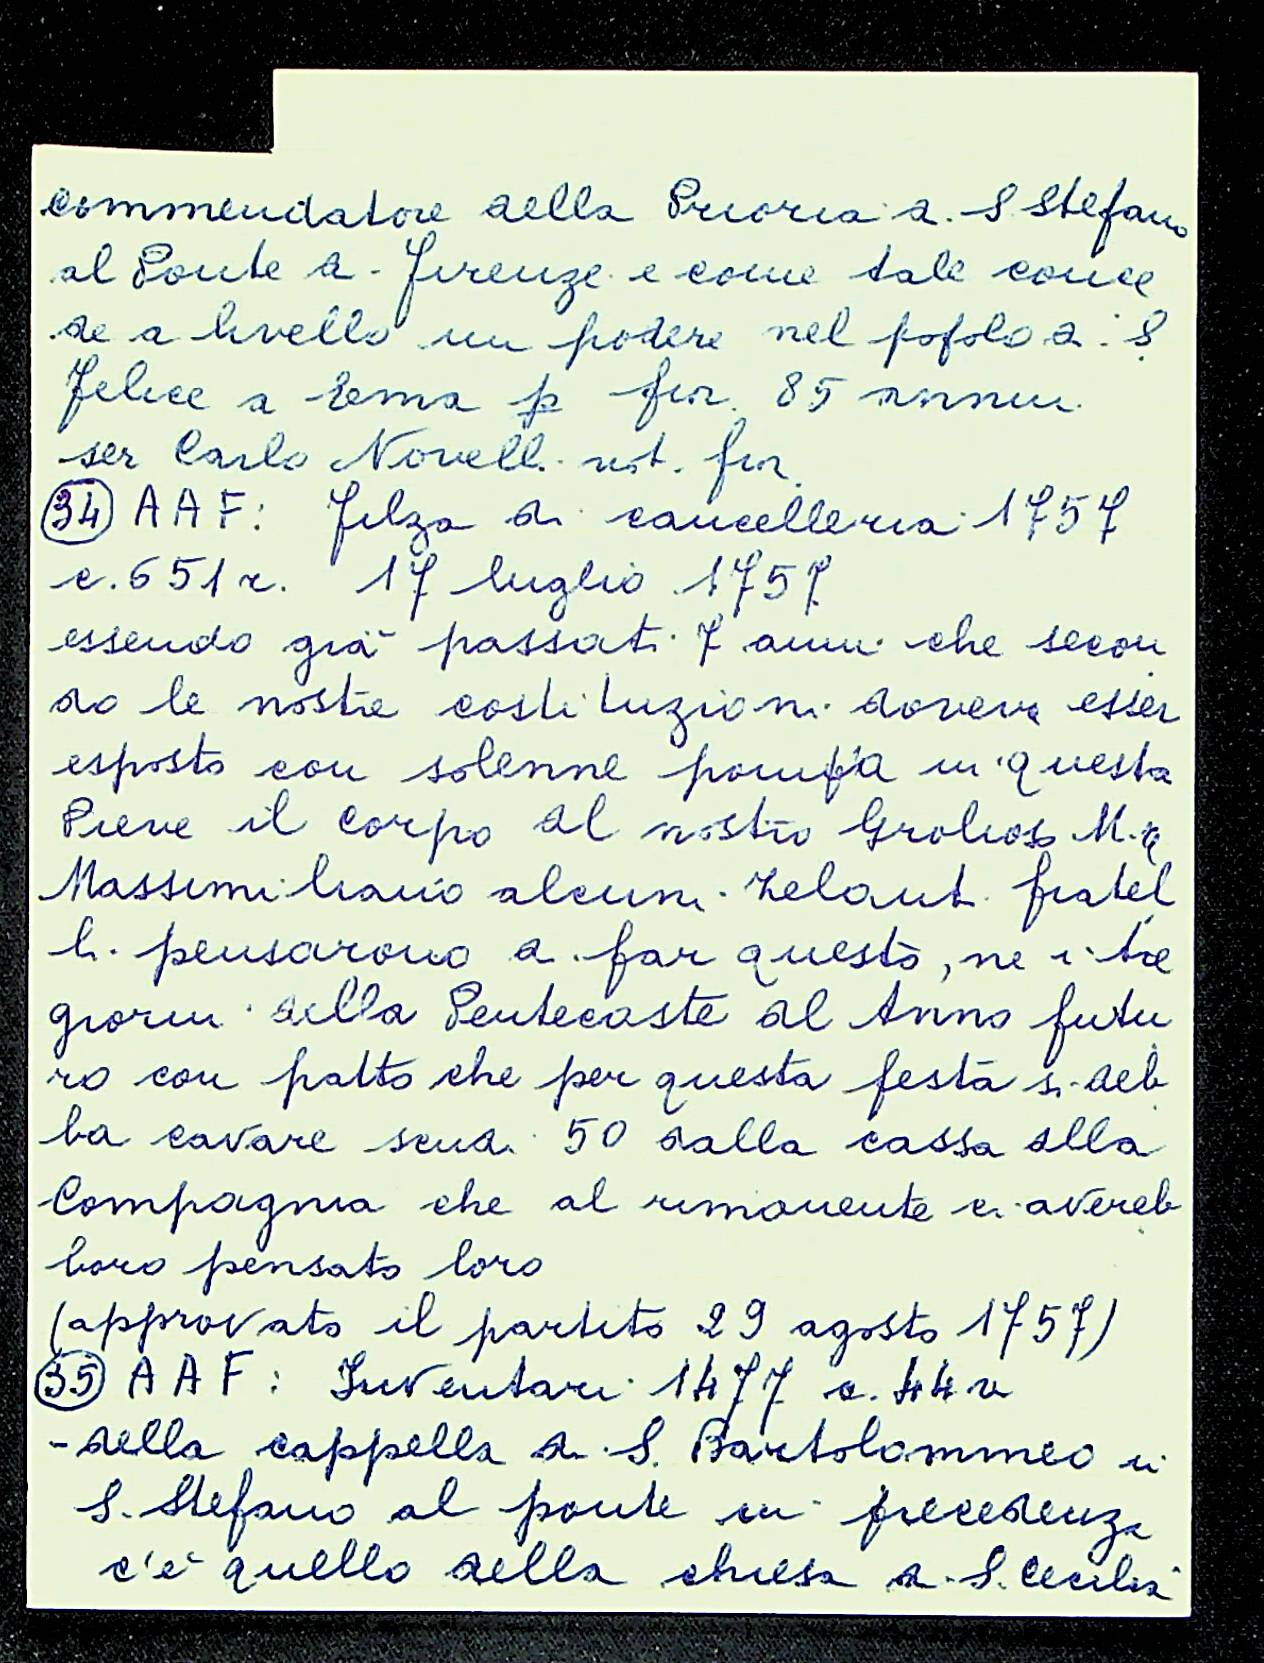 commendatore della Prioria di S. Stefano
al Ponte di Firenze e come tale conce
de a livello un podere nel popolo di S.
Felice a Ema p fior. 85 annui.
ser Carlo Novelli not. fior.
34 AAF: Filza di cancelleria 1757
c. 651 r. 17 luglio 1757
essendo già passati 7 anni che secon
do le nostre costituzioni doveva esser
esposto con solenne pompa in questa
Pieve il corpo del nostro Grolioso M.e
Massimiliano alcuni zelanti fratel
li pensarono di far questo, ne i tre
giorni della Pentecoste del Anno futu
ro con patto che per questa festa si deb
ba cavare scudi 50 dalla cassa della
Compagnia che al rimanente ci avereb
boro pensato loro
(approvato il partito 29 agosto 1757)
35 AAF: Inventari 1477 c. 44 v
- della cappella di S. Bartolommeo in
S. Stefano al ponte in precedenza
c'è quello della chiesa di S. Cecilia